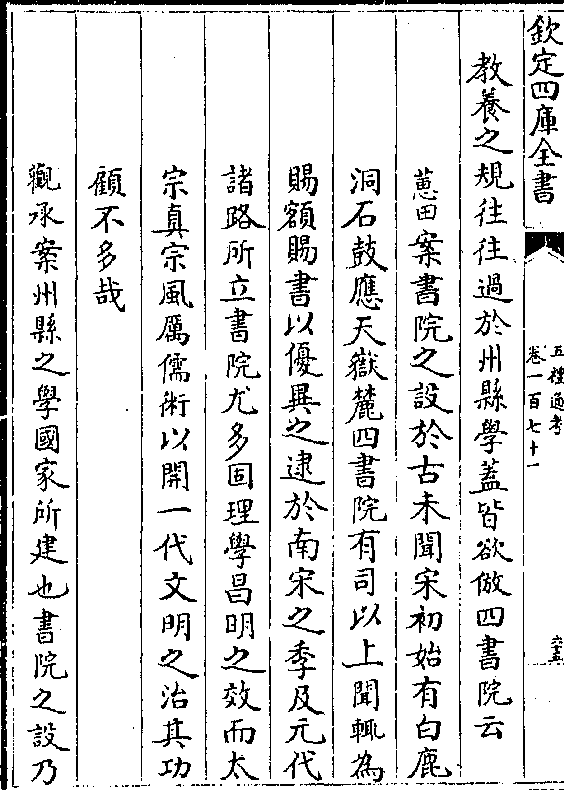 欽定四庫全書
五禮通考
卷一百七十一
六五
教養之規往往過於州縣學蓋皆欲倣四書院云
蕙田案書院之設於古未聞宋初始有白鹿
洞石鼓應天嶽麓四書院有司以上聞輒為
賜額賜書以優異之逮於南宋之季及元代
諸路所立書院尤多固理學昌明之效而太
宗真宗風厲儒術以開一代文明之治其功
顧不多哉
觀承案州縣之學國家所建也書院之設乃